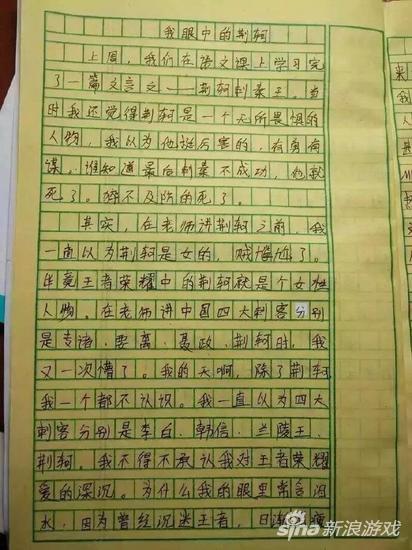 我眼中的荆轲
上周，我们在语文课上学习完
了一篇文言文——荆轲刺秦王。当
时我还觉得荆轲是一个无所畏惧的
人物，我以为他挺厉害的，有勇有
谋。谁知道最后刺秦不成功，他就
死了。猝不及防的死了。
其实，在老师讲荆轲之前，我
一直以为荆轲是女的，贼尴尬了。
毕竟王者荣耀中的荆轲就是个女性
人物。在老师讲中国四大刺客分别
是专诸、要离、聂政、荆轲时，我
又一次懵了。我的天啊，除了荆轲
我一个都不认识。我一直以为四大
刺客分别是李白、韩信、兰陵王、
荆轲。我不得不承认我对王者荣耀
爱的深沉。为什么我的眼里常含泪
水，因为曾经沉迷王者，日
sina 新浪游戏